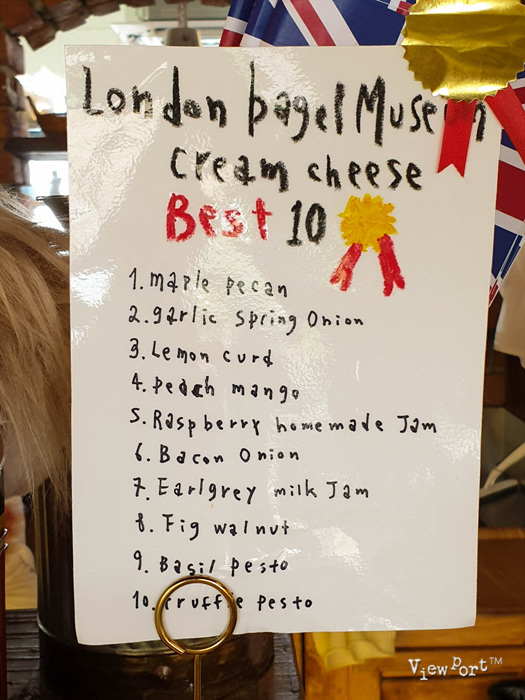 London bagel Museum
cream cheese
Best 10
1. maple pecan
2. garlic spring Onion
3. Lemon curd
4. peach mango
5. Raspberry homemade Jam
6. Bacon Onion
7. Earlgrey milk Jam
8. Fig walnut
9. Basil pesto
10. truffle pesto
ViewPort™